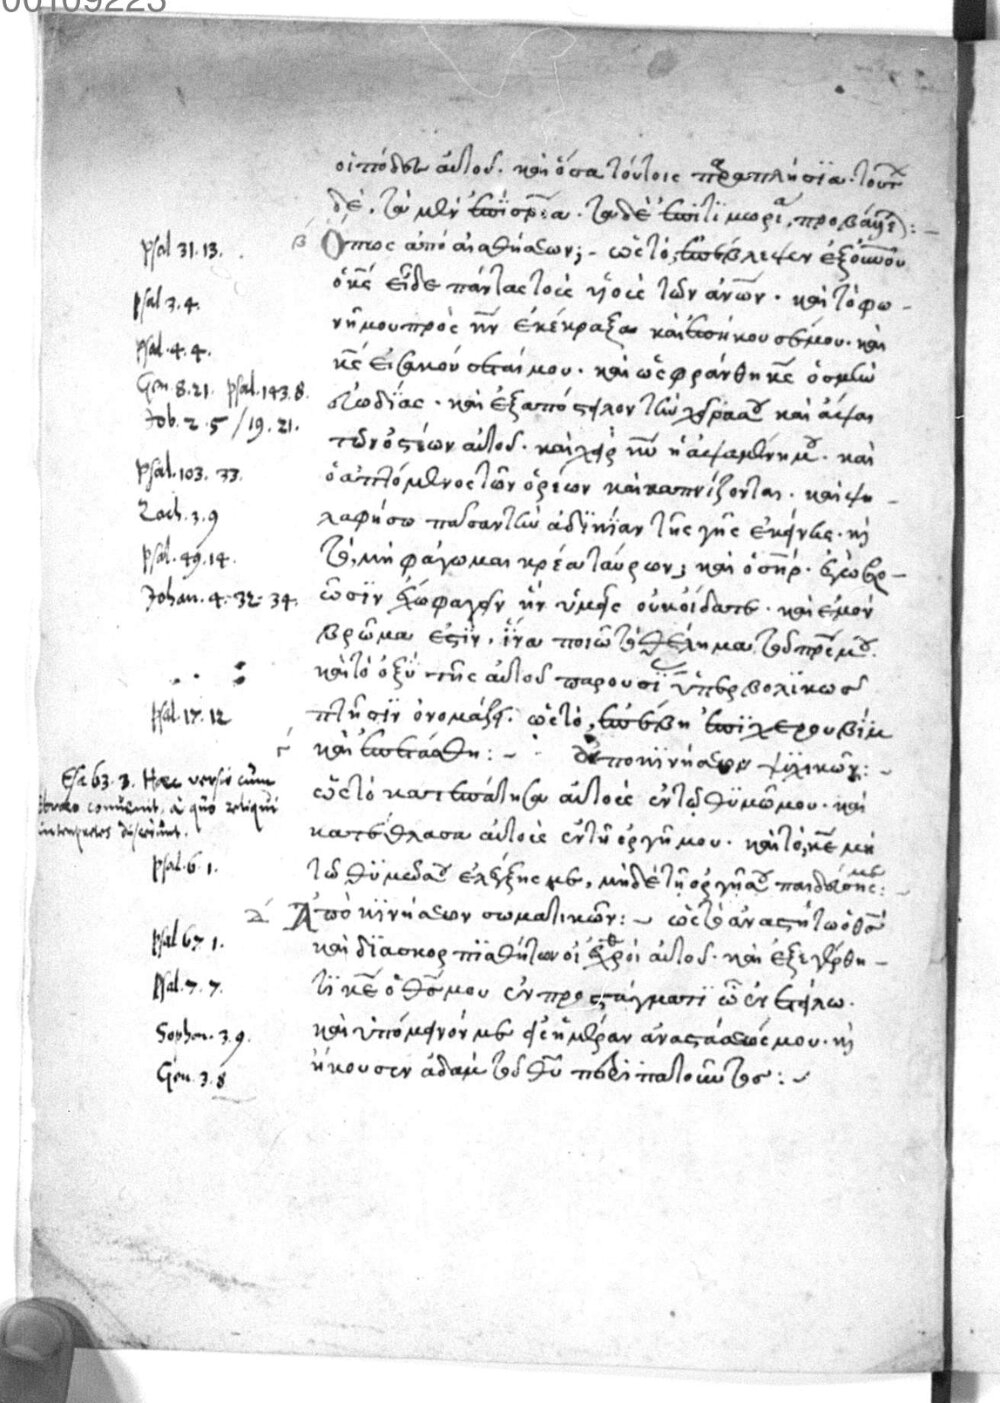 00109223
οἱ πόδες αὐτοῦ. καὶ ὅσα τούτοις παραπλήσια. τούτων
δὲ, τὰ μὲν ἐπὶ σρία. τὰ δὲ ἐπὶ τιμωρία, προβαίνει:-
Psal 31. 13. β Ὅπως ἀπὸ αἰσθήσεων; - ὡς τὸ, ἐπέβλεψεν ἐξ οὐνοῦ
ὁ κς εἶδε πάντας τοὺς υἱοὺς τῶν ἀνων. καὶ τὸ φω-
psal 3. 4. νῇ μου πρὸς κν ἐκέκραξα καὶ ἐπήκουσέ μου. καὶ
psal. 4. 4. κς εἰσακούσεταί μου. καὶ ὠσφράνθη κς ὀσμὴν
Gen. 8. 21. psal. 143. 8. εὐωδίας. καὶ ἐξαπόστειλον τὴν χεῖρά σου καὶ ἅψαι
Job. 2. 5 / 19. 21. τῶν ὀστέων αὐτοῦ. καὶ χεὶρ κυ ἡ ἁψαμένη μου. καὶ
psal. 103. 33. ὁ ἁπτόμενος τῶν ὀρέων καὶ καπνίζονται. καὶ ψη-
Zach. 3. 9 λαφήσω πᾶσαν τὴν ἀδικίαν τῆς γῆς ἐκείνης. κὶ
psal. 49. 14. τὸ, μὴ φάγωμαι κρέα ταύρων; καὶ ὁ σηρ. ἐγὼ βρ-
Johan. 4. 32. 34. ῶσιν ἔχω φαγεῖν ἣν ὑμεῖς οὐκ οἴδατε. καὶ ἐμὸν
βρῶμα ἐστὶν, ἵνα ποιῶ τὸ θέλημα τοῦ πρς μου.
καὶ τὸ ὀξὺ τῆς αὐτοῦ παρουσί ὑπερβολικῶς
Psal. 17. 12 πτῆσιν ὀνομάζει. ὡς τὸ, ἐπέβη ἐπὶ χερουβὶμ
γ καὶ ἐπετάσθη: - ἀπὸ κινήσεων ψυχικῶν: -
Esa 63. 3. Haec versio cum
hebraeo convenit, à quo reliqui
interpretes discedunt.
ὡς τὸ κατεπάτησα αὐτοὺς ἐν τῷ θυμῷ μου. καὶ
κατέθλασα αὐτοὺς ἐν τῇ ὀργῇ μου. καὶ τὸ, κε μὴ
psal. 6. 1. τῷ θυμῷ σου ἐλέγξῃς με, μηδὲ τῇ ὀργῇ σου παιδεύσῃς με: -
δ Ἀπὸ κινήσεων σωματικῶν: - ὡς τὸ ἀναστήτω ὁ θς
psal 67. 1. καὶ διασκορπισθήτωσαν οἱ ἐχθροὶ αὐτοῦ. καὶ ἐξεγέρθη-
psal. 7. 7. τι κε ὁ θς μου ἐν προστάγματι ᾧ ἐνετείλω.
Sophon. 3. 9. καὶ ὑπόμεινόν με εἰς ἡμέραν ἀναστάσεώς μου. κὶ
Gen. 3. 8 ἤκουσεν ἀδὰμ τοῦ θυ περιπατοῦντος: -